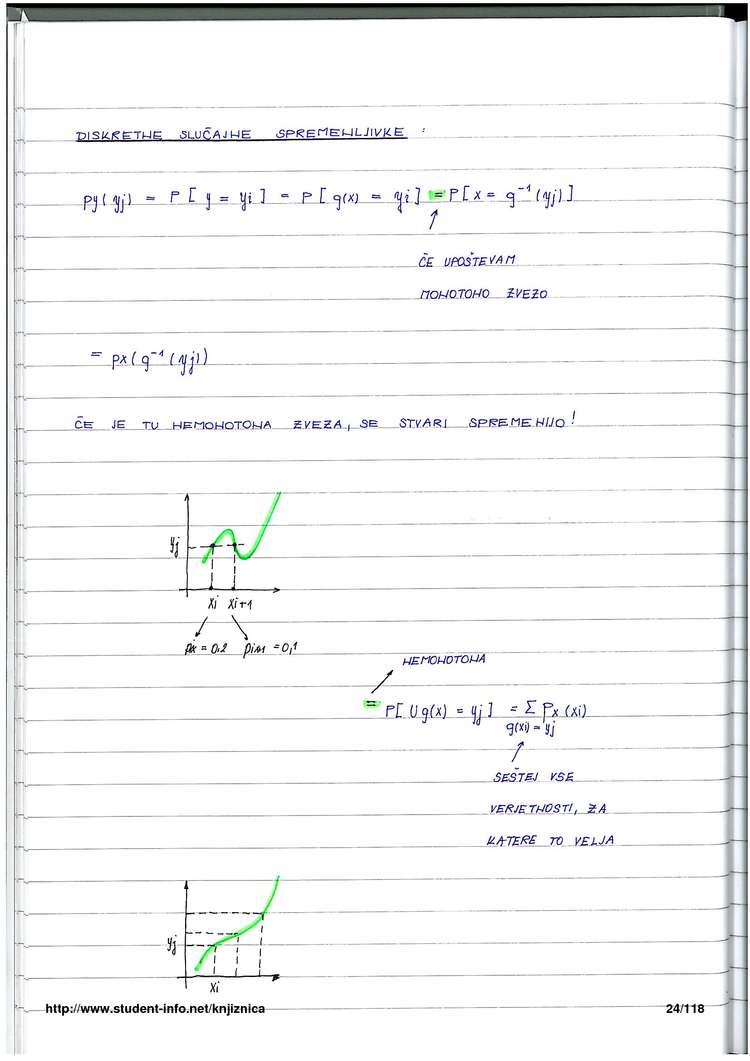 DISKRETNE SLUČAJNE SPREMENLJIVKE :
py(yj) = P[y = yi] = P[g(x) = yi] = P[x = g⁻¹(yj)]
ČE UPOŠTEVAM
MONOTONO ZVEZO
= px(g⁻¹(yj))
ČE JE TU NEMONOTONA ZVEZA, SE STVARI SPREMENIJO!
yj
xi xi+1
px = 0,2 pi+1 = 0,1
NEMONOTONA
= P[U g(x) = yj] = Σ px(xi)
g(xi) = yj
SEŠTEJ VSE
VERJETNOSTI, ZA
KATERE TO VELJA
yj
xi
http://www.student-info.net/knjiznica 24/118